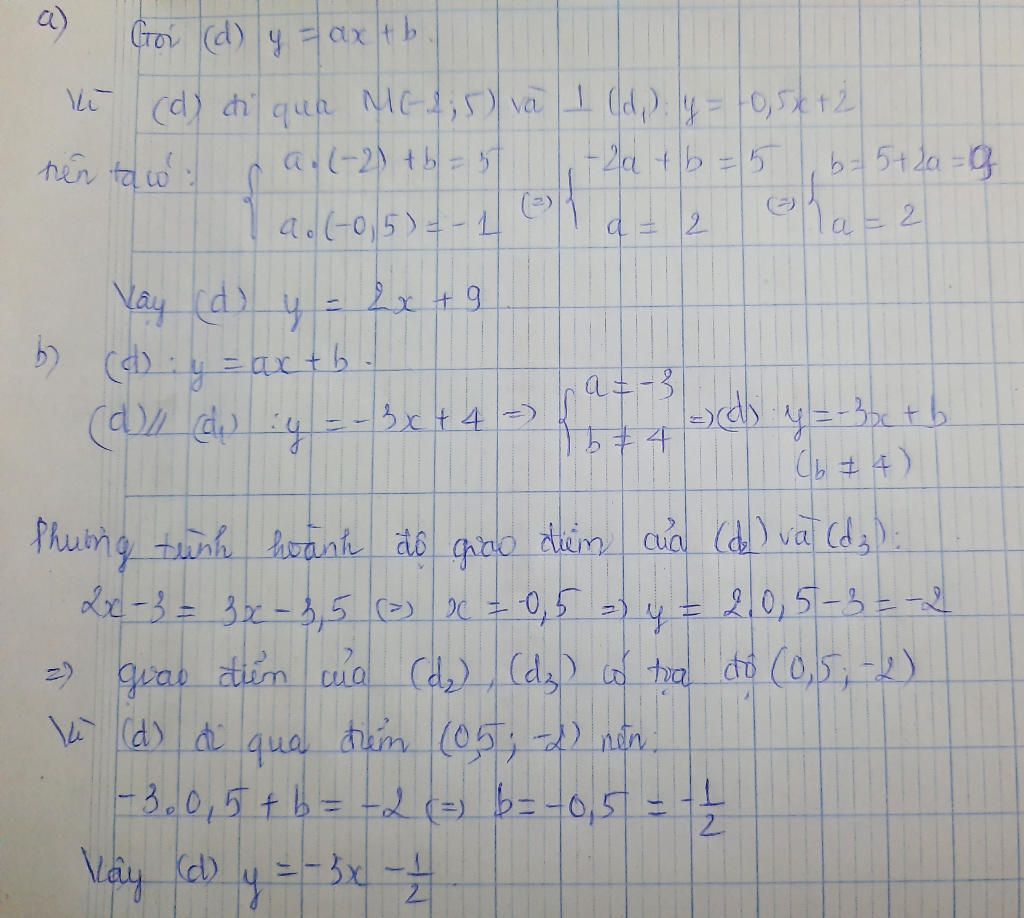 a) Gọi (d) y = ax + b.
Vì (d) đi qua M(-2; 5) và ⊥ (d₁): y = -0,5x + 2
nên ta có: { a.(-2) + b = 5 ; a.(-0,5) = -1 (=) { -2a + b = 5 ; a = 2 (=) { b = 5 + 2a = 9 ; a = 2
Vậy (d) y = 2x + 9
b) (d): y = ax + b.
(d) // (d₁): y = -3x + 4 => { a = -3 ; b ≠ 4 => (d): y = -3x + b
(b ≠ 4)
Phương trình hoành độ giao điểm của (d₂) và (d₃):
2x - 3 = 3x - 3,5 (=) x = 0,5 => y = 2.0,5 - 3 = -2
=> giao điểm của (d₂), (d₃) có tọa độ (0,5; -2)
Vì (d) đi qua điểm (0,5; -2) nên:
-3.0,5 + b = -2 (=) b = -0,5 = -1/2
Vậy (d) y = -3x - 1/2